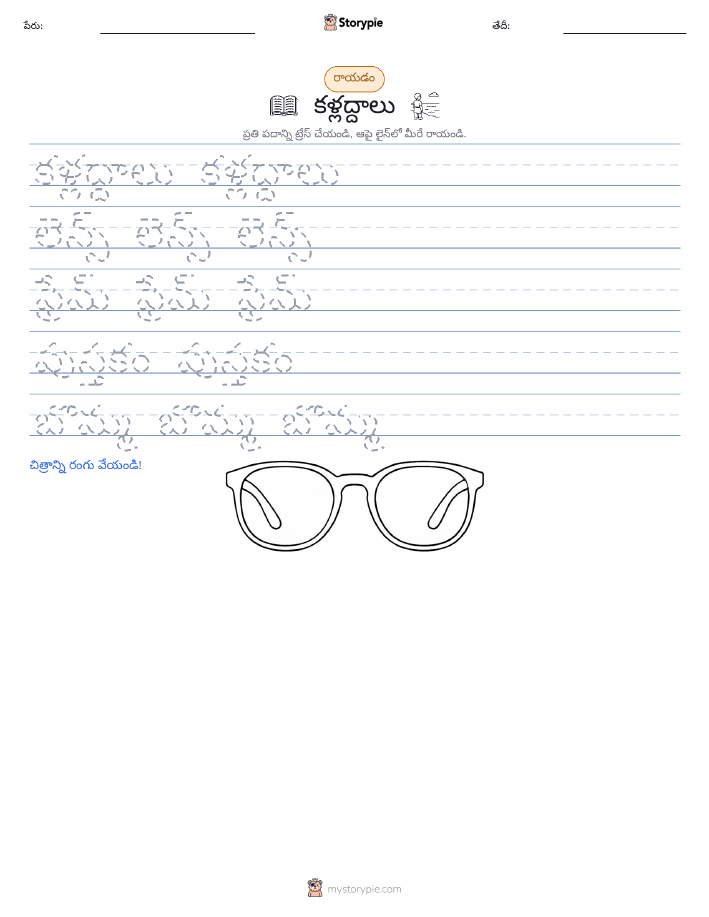 పేరు:
Storypie
తేదీ:
రాయడం
కళ్లద్దాలు
ప్రతి పదాన్ని ట్రేస్ చేయండి, ఆపై లైన్‌లో మీరే రాయండి.
కళ్లద్దాలు కళ్లద్దాలు
లెన్స్ లెన్స్ లెన్స్
ఫ్రేమ్ ఫ్రేమ్ ఫ్రేమ్
పుస్తకం పుస్తకం
బొమ్మల్లె
చిత్రాన్ని రంగు వేయండి!
mystorypie.com